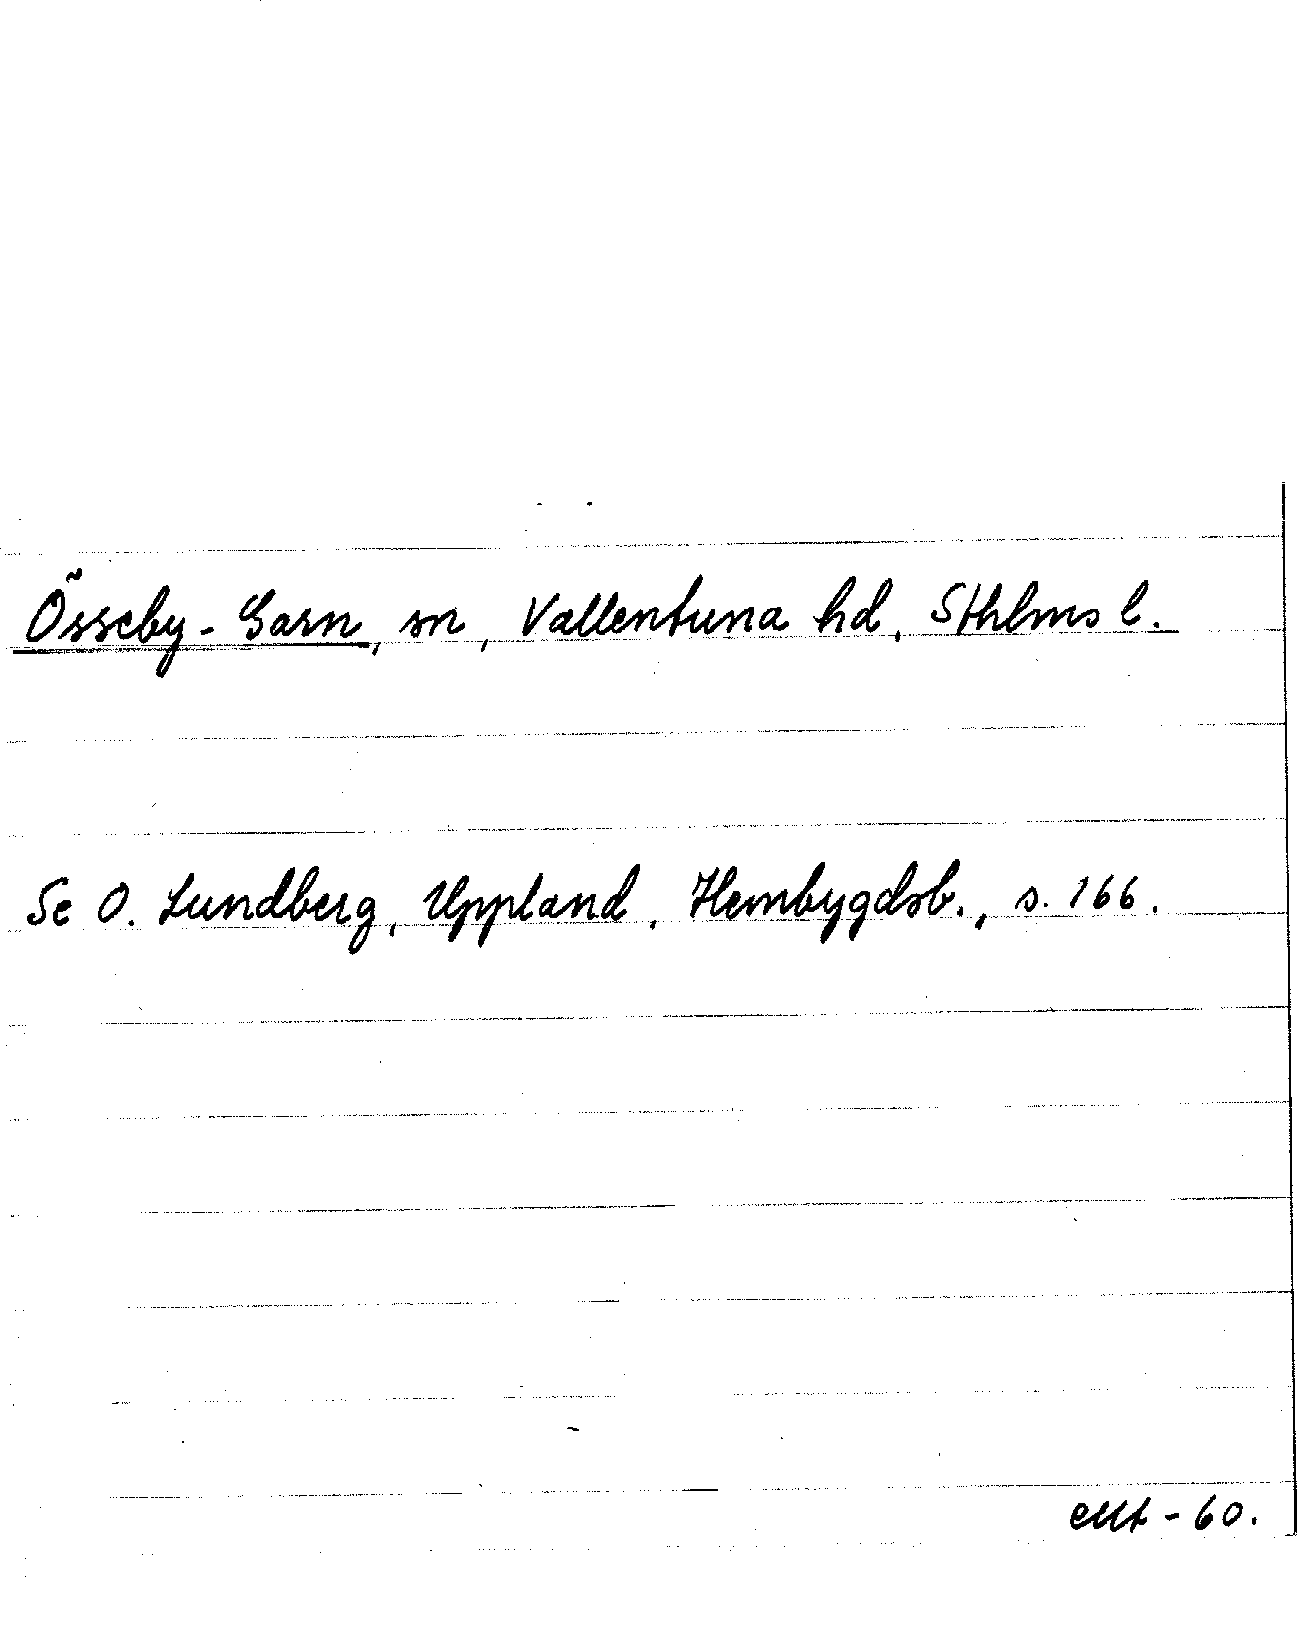 Össeby-Garn, sn, Vallentuna hd, Sthlms l.
Se O. Lundberg, Uppland, Hembygdsb., s. 166.
-60.